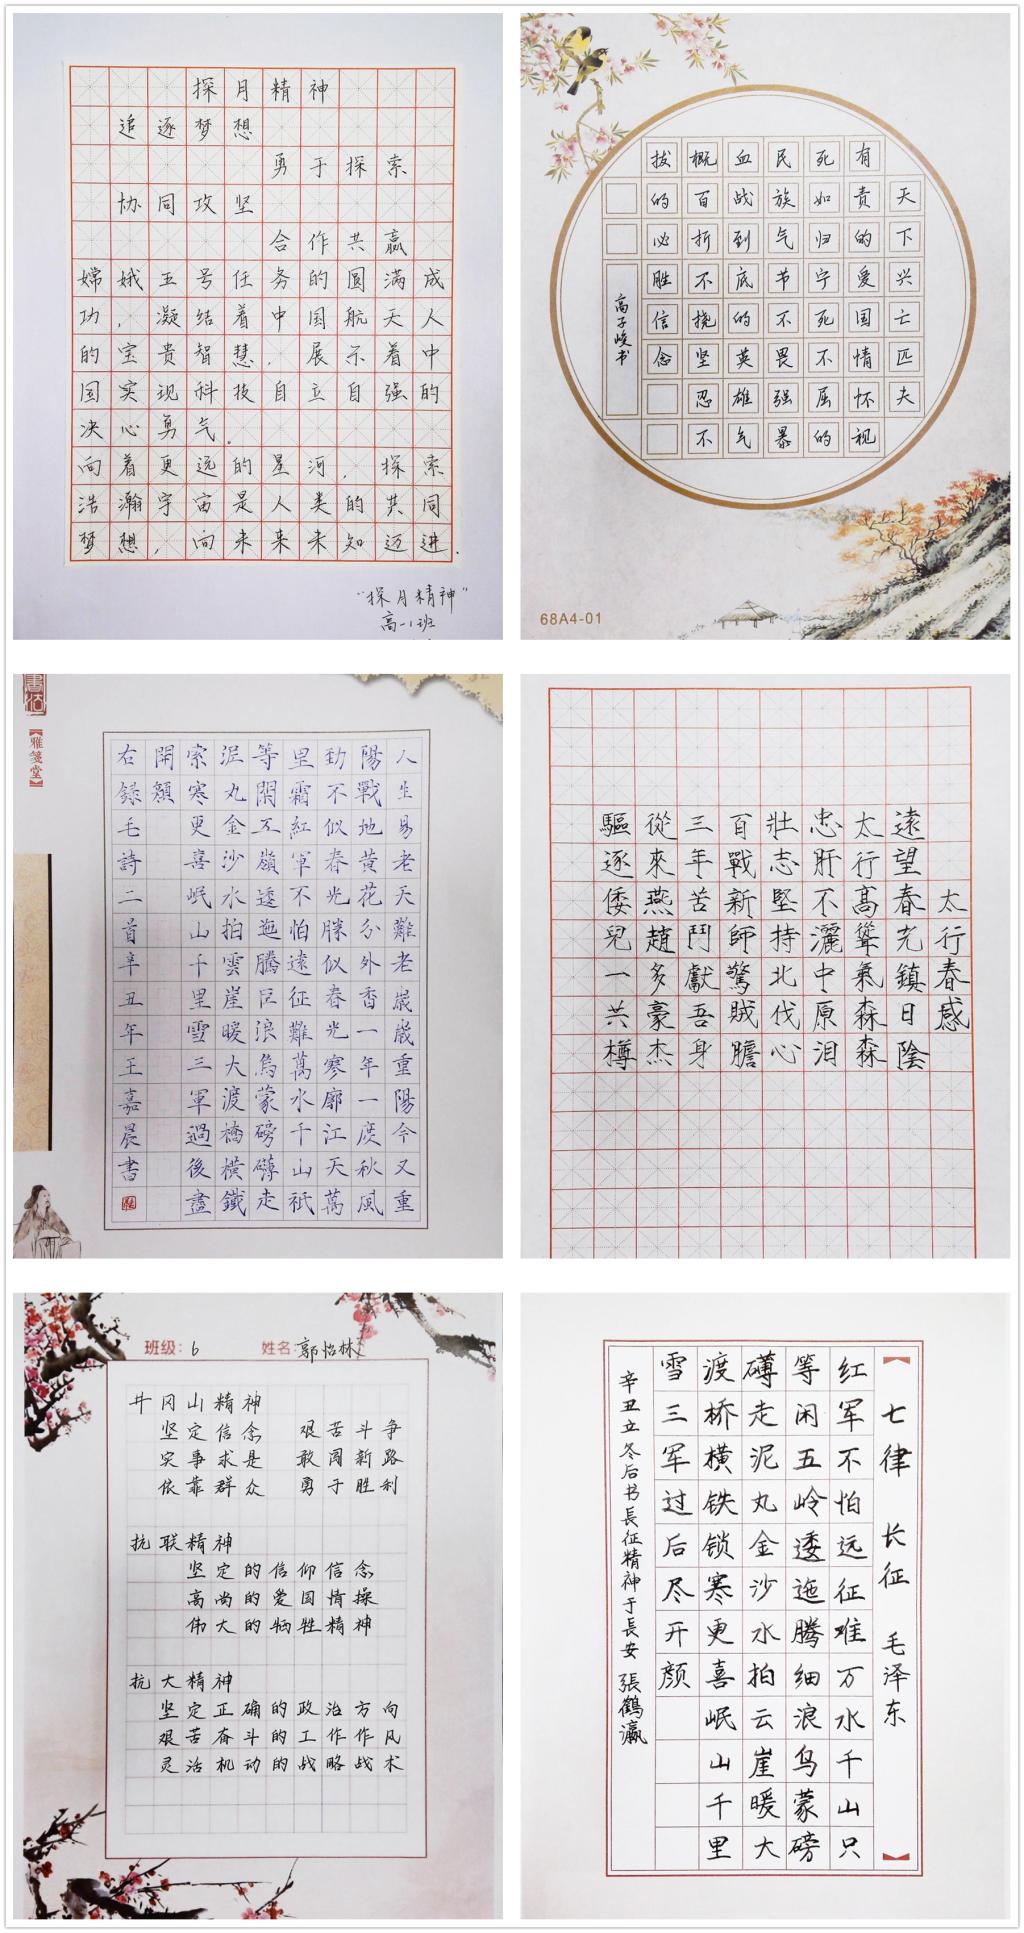 探月精神
追逐梦想
勇于探索
协同攻坚
合作共赢
嫦娥五号任务的圆满成
功，凝结着中国航天人
的宝贵智慧，展示着中
国实现科技自立自强的
决心勇气。
向着更远的星河，探索
浩瀚宇宙是人类的共同
梦想，向未来未知迈进.
“探月精神”
高一1班
天下兴亡匹夫
有责的爱国情怀视
死如归宁死不屈的
民族气节不畏强暴
血战到底的英雄气
概百折不挠坚忍不
拔的必胜信念
高子峻书
68A4-01
雅箋堂
人生易老天難老歲歲重陽今又重
陽戰地黄花分外香一年一度秋風
勁不似春光勝似春光寥廓江天萬
里霜紅軍不怕遠征難萬水千山祇
等閑五嶺逶迤騰巨浪烏蒙磅礴走
泥丸金沙水拍雲崖暖大渡橋横鐵
索寒更喜岷山千里雪三軍過後盡
開顏
右録毛詩二首辛丑年王嘉晨書
太行春感
遠望春光鎮日陰
太行高聳氣森森
忠肝不灑中原泪
壯志堅持北伐心
百戰新師驚賊膽
三年苦鬥獻吾身
從來燕趙多豪杰
驅逐倭兒一共樽
班级: 6 姓名: 郭怡林
井冈山精神
坚定信念 艰苦斗争
实事求是 敢闯新路
依靠群众 勇于胜利
抗联精神
坚定的信仰信念
高尚的爱国情操
伟大的牺牲精神
抗大精神
坚定正确的政治方向
艰苦奋斗的工作作风
灵活机动的战略战术
七律 长征 毛泽东
红军不怕远征难万水千山只
等闲五岭逶迤腾细浪乌蒙磅
礴走泥丸金沙水拍云崖暖大
渡桥横铁锁寒更喜岷山千里
雪三军过后尽开颜
辛丑立冬后书長征精神于長安 張鶴瀛